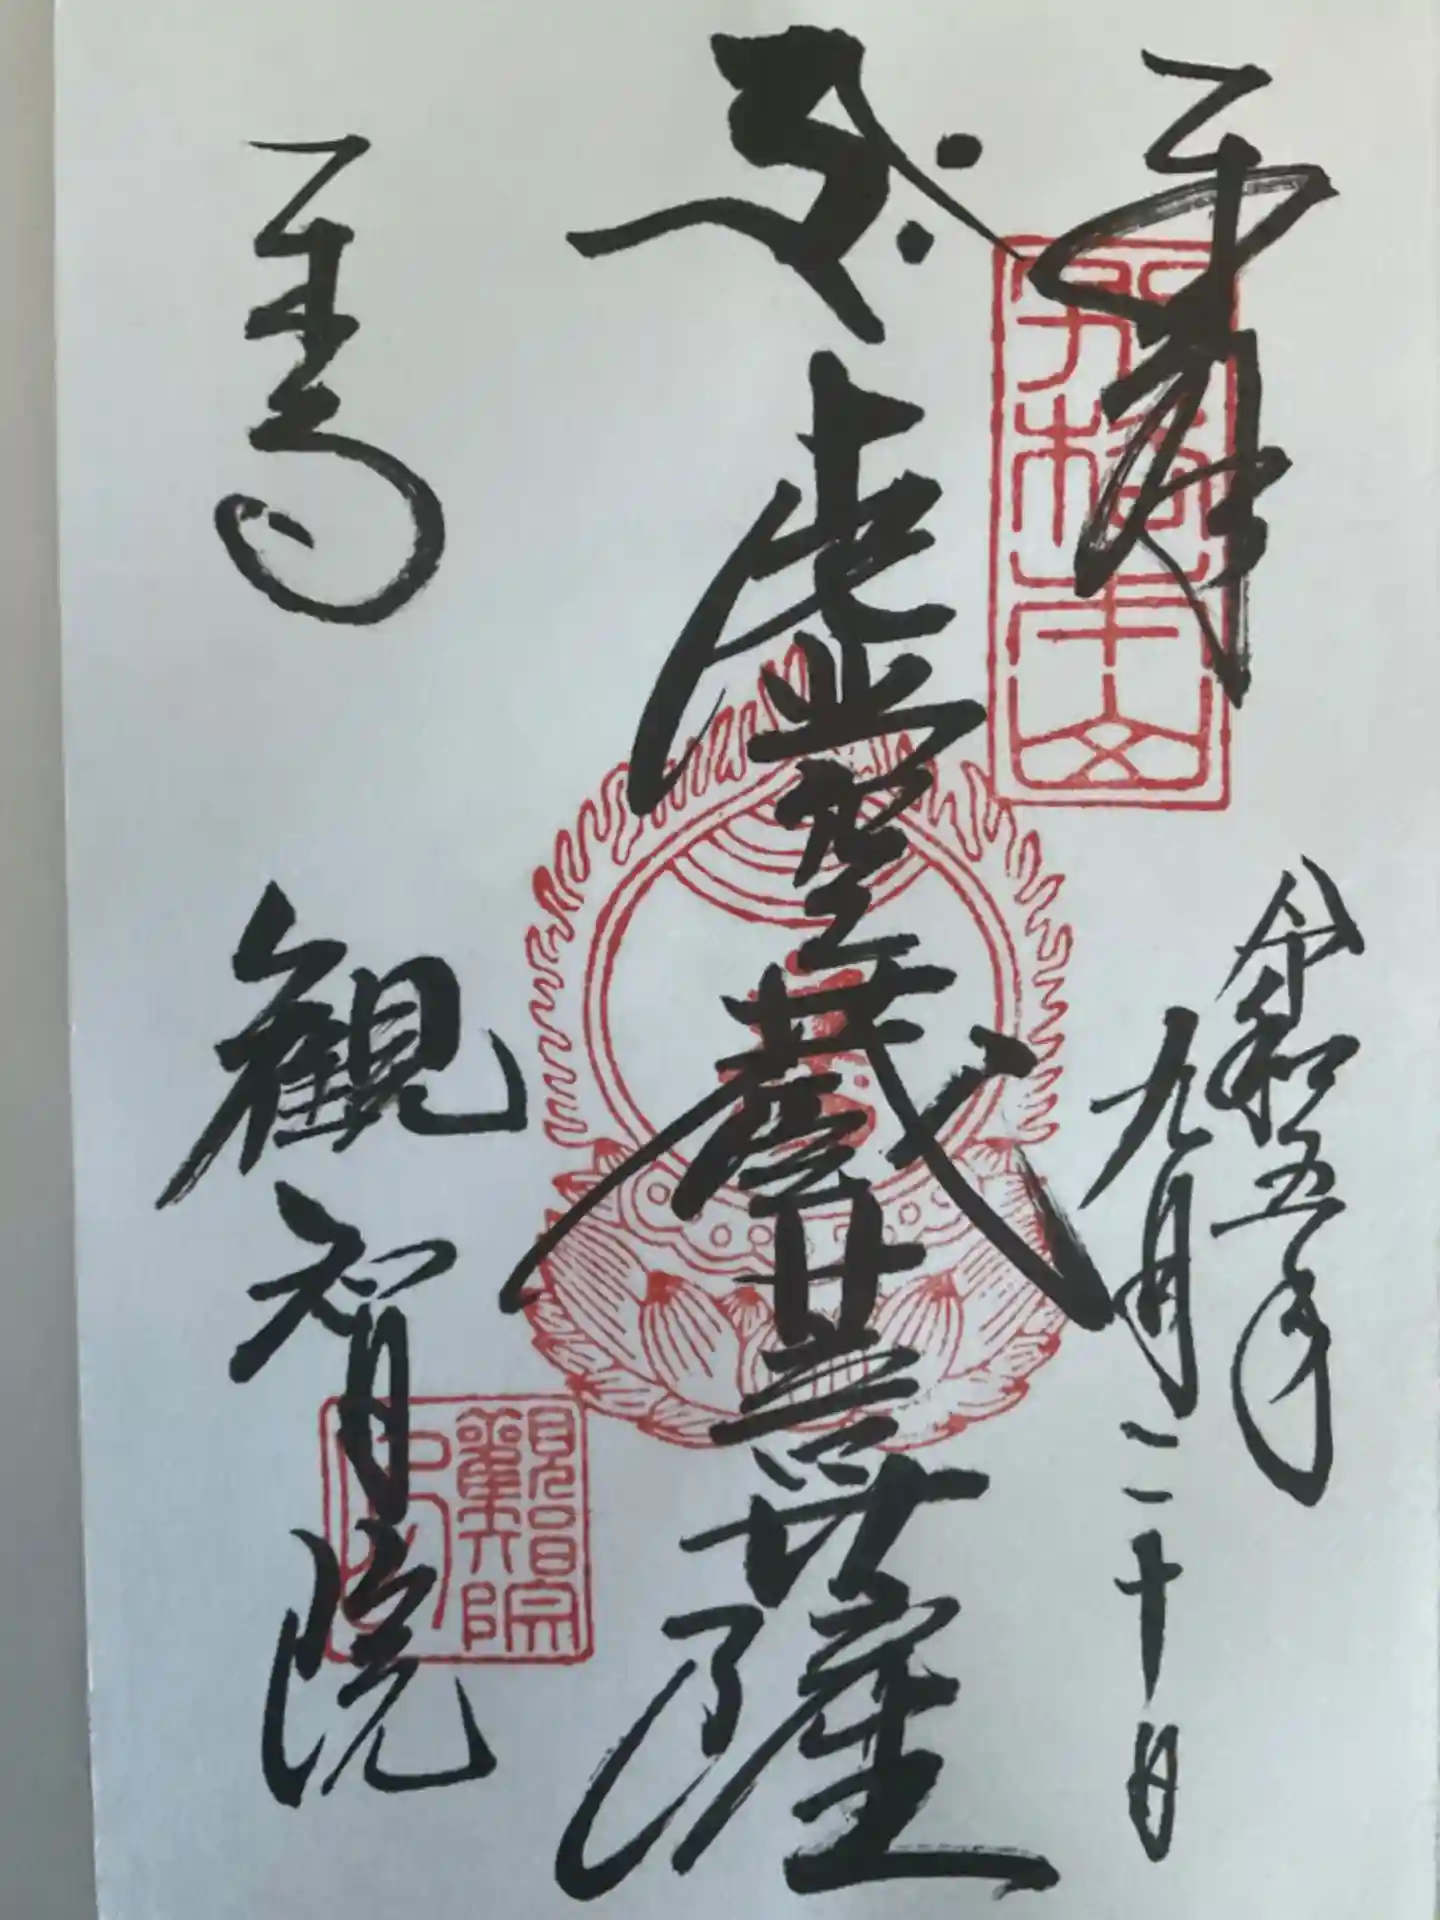 奉拝
令和五年
九月二十日
虚空蔵菩薩
東寺
観智院
観智院印